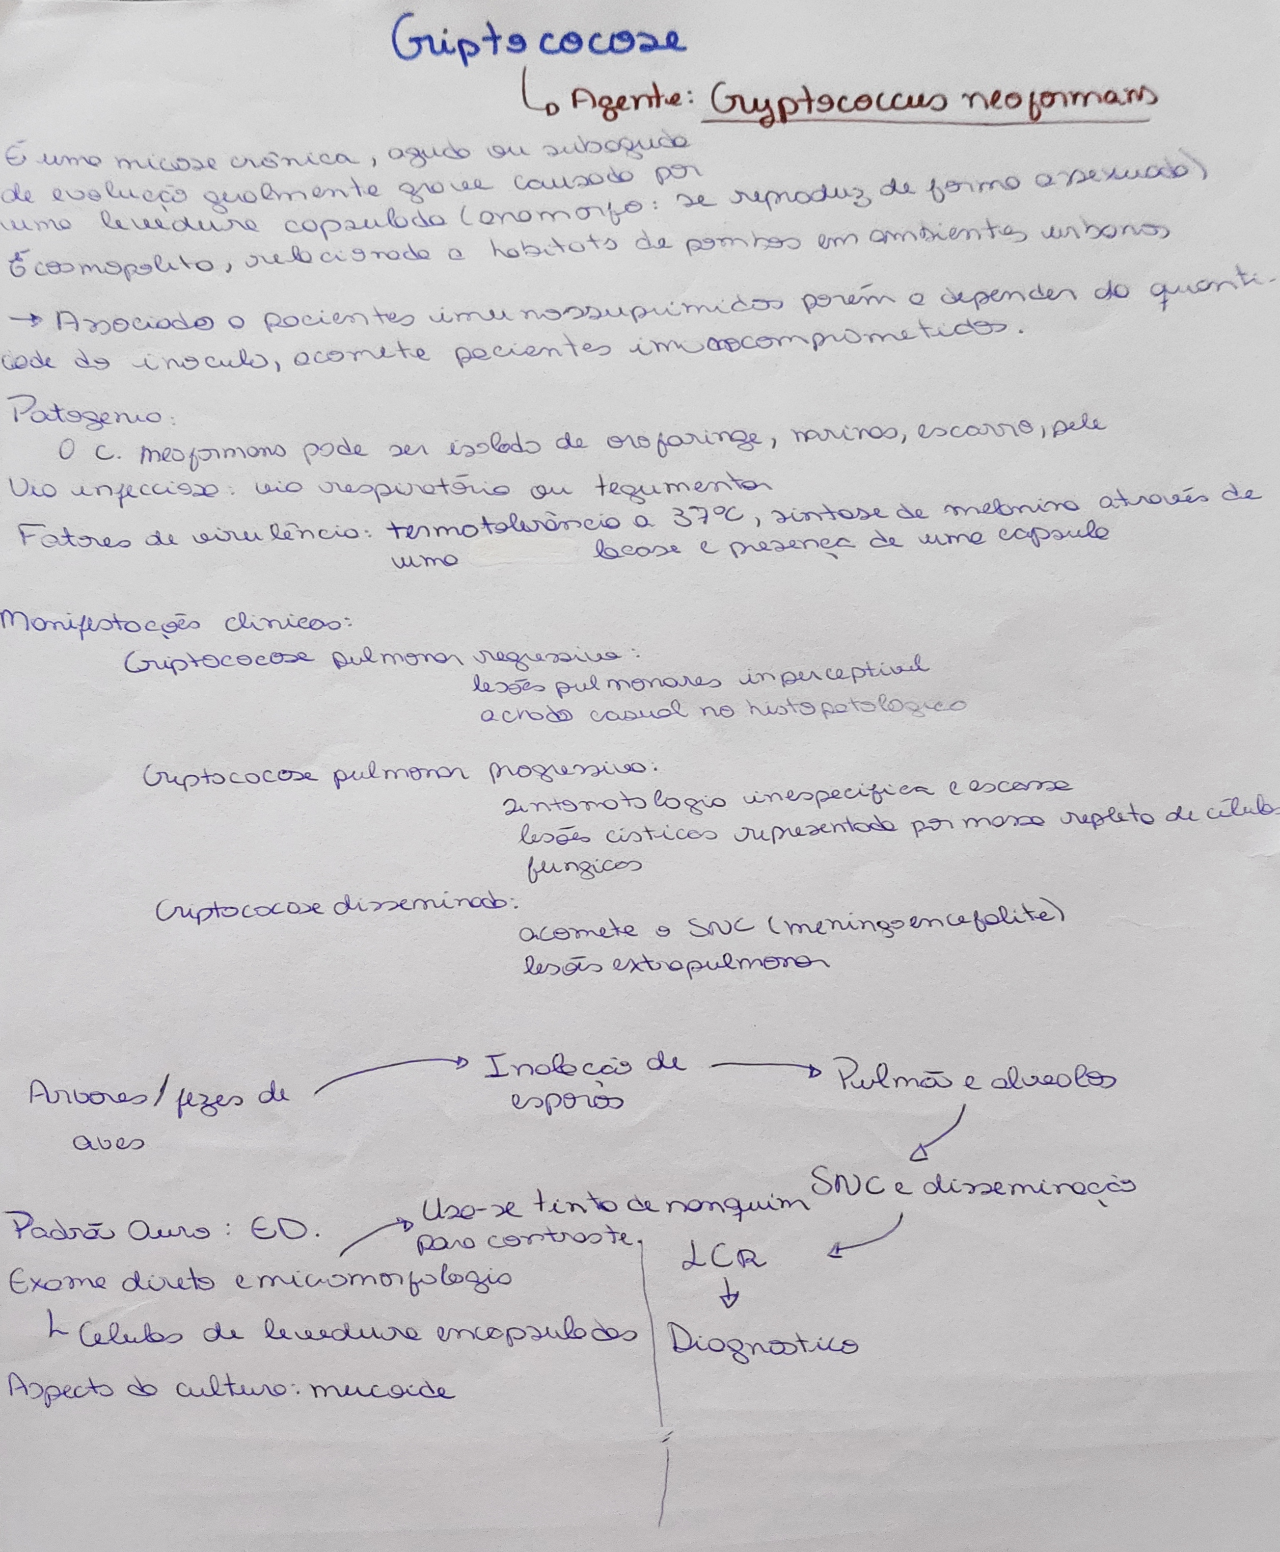 Criptococose
↳ Agente: Cryptococcus neoformans
É uma micose crônica, aguda ou subaguda
de evolução geralmente grave causada por
uma levedura capsulada (anamorfo: se reproduz de forma assexuada)
É cosmopolita, relacionada a habitats de pombos em ambientes urbanos
→ Associado a pacientes imunossuprimidos porém a depender da quanti-
dade do inoculo, acomete pacientes imunocomprometidos.
Patogenia:
O C. neoformans pode ser isolado de orofaringe, narinas, escarro, pele
Via infecciosa: via respiratória ou tegumentar
Fatores de virulência: termotolerância a 37°C, sintase de melanina através de
uma lacase e presença de uma capsula
Manifestações clinicas:
Criptococose pulmonar regressiva:
lesões pulmonares inperceptivel
achado casual no histopatológico
Criptococose pulmonar progressiva:
sintomatologia inespecifica e escassa
lesões cisticas representada por massa repleta de células
fungicas
Criptococose disseminada:
acomete o SNC (meningoencefalite)
lesões extrapulmonar
Arvores/fezes de
aves
→ Inalação de
esporos
→ Pulmão e alveolos
SNC e disseminação
LCR
↓
Diagnostico
Padrão Ouro: ED.
→ Usa-se tinta de nanquim
para contraste.
Exame direto e micromorfologia
↳ Celulas de levedura encapsuladas
Aspecto da cultura: mucoide